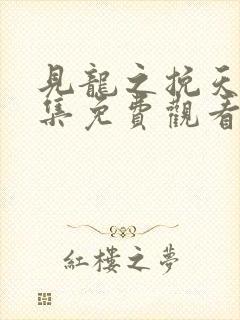 見龍之挽天
集免費觀看
紅樓之夢